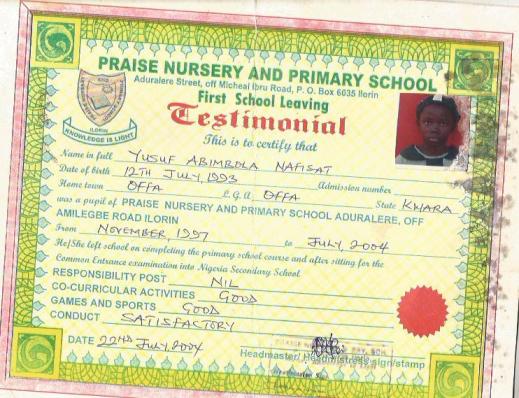 PRAISE NURSERY AND PRIMARY SCHOOL
Aduralere Street, off Micheal Ibru Road, P. O. Box 6035 Ilorin
First School Leaving
Testimonial
ILORIN
KNOWLEDGE IS LIGHT
This is to certify that
Name in full YUSUF ABIMBOLA NAFISAT
Date of birth 12TH JULY, 1993 Admission number
Home town OFFA L.G.A. OFFA State KWARA
was a pupil of PRAISE NURSERY AND PRIMARY SCHOOL ADURALERE, OFF
AMILEGBE ROAD ILORIN
From NOVEMBER, 1997 to JULY, 2004
He/She left school on completing the primary school course and after sitting for the
Common Entrance examination into Nigeria Secondary School
RESPONSIBILITY POST NIL
CO-CURRICULAR ACTIVITIES GOOD
GAMES AND SPORTS GOOD
CONDUCT SATISFACTORY
DATE 22ND July, 2004
Headmaster/ Headmistress sign/stamp